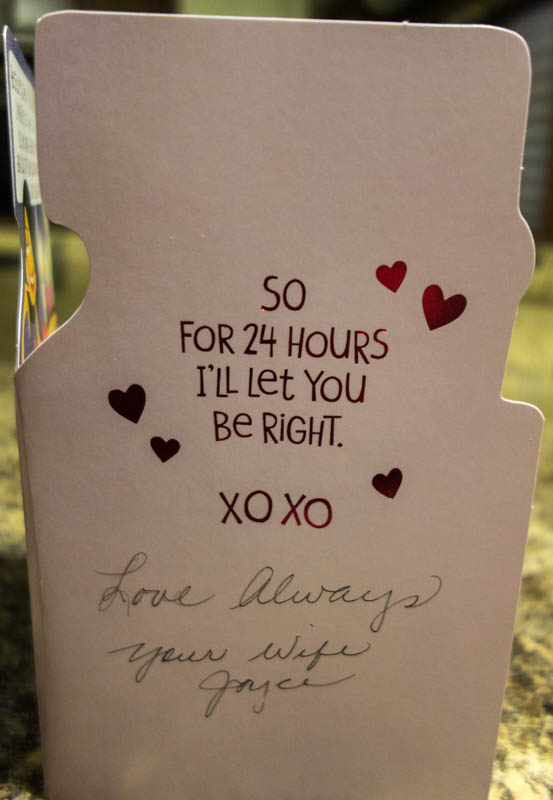 SO
FOR 24 HOURS
I'LL Let YOU
Be RiGHT.
XOXO
Love Always
your wife
Joyce